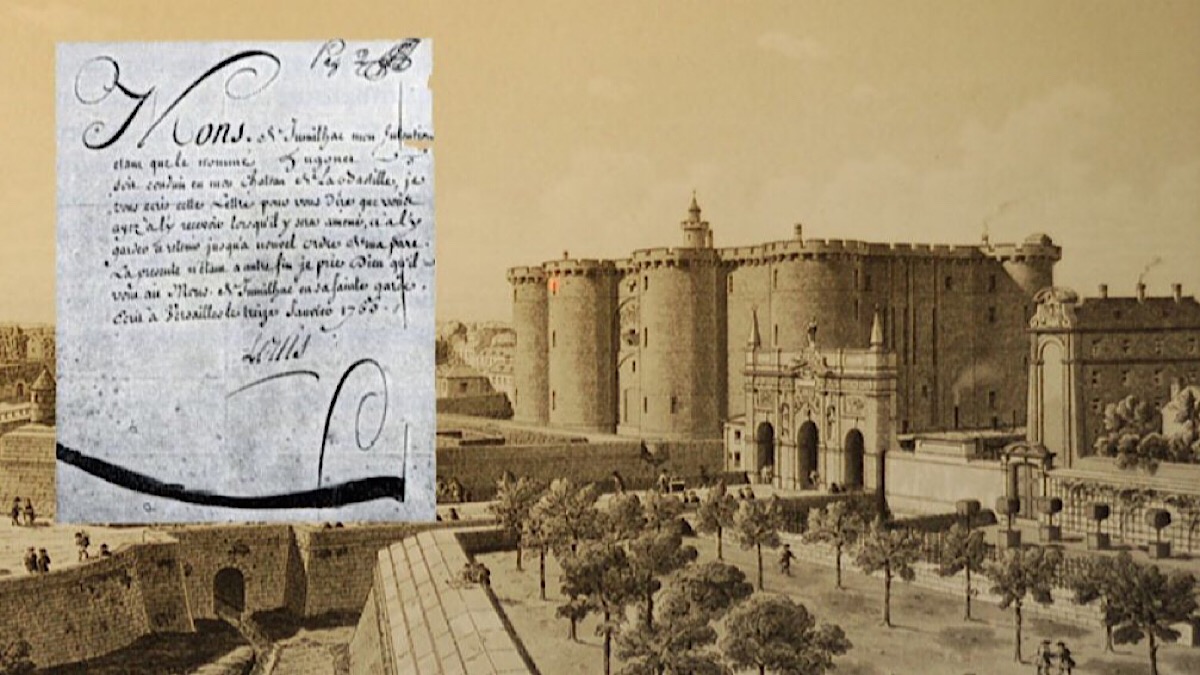 Mons. de Jumilhac mon Intention
etant que le nommé Hugonet
soit conduit en mon Chateau de La Bastille, je
vous ecris cette Lettre pour vous dire que vous
ayez a l'y recevoir lorsqu'il y sera amené, et a l'y
garder et retenir jusqu'a nouvel ordre de ma part.
La presente n'étant a autre fin je prie Dieu qu'il
vous ait Mons. de Jumilhac en sa sainte garde.
Ecrit à Versailles le treize Janvier 1765.
Louis